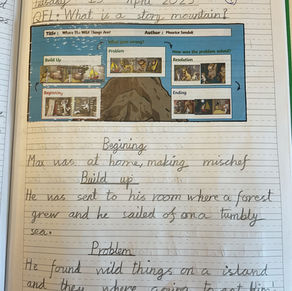 Tuesday 15 April 2025
QFL: What is a story mountain?
Title: Where The Wild Things Are! Author: Maurice Sendak
What goes wrong?
Build Up
Problem
How was the problem solved?
Resolution
Beginning
Ending
Begining
Max was at home, making mischief
Build up
He was sent to his room where a forest
grew and he sailed of on a tumbly
sea.
Problem
He found wild things on a island
and they where going to eat him!